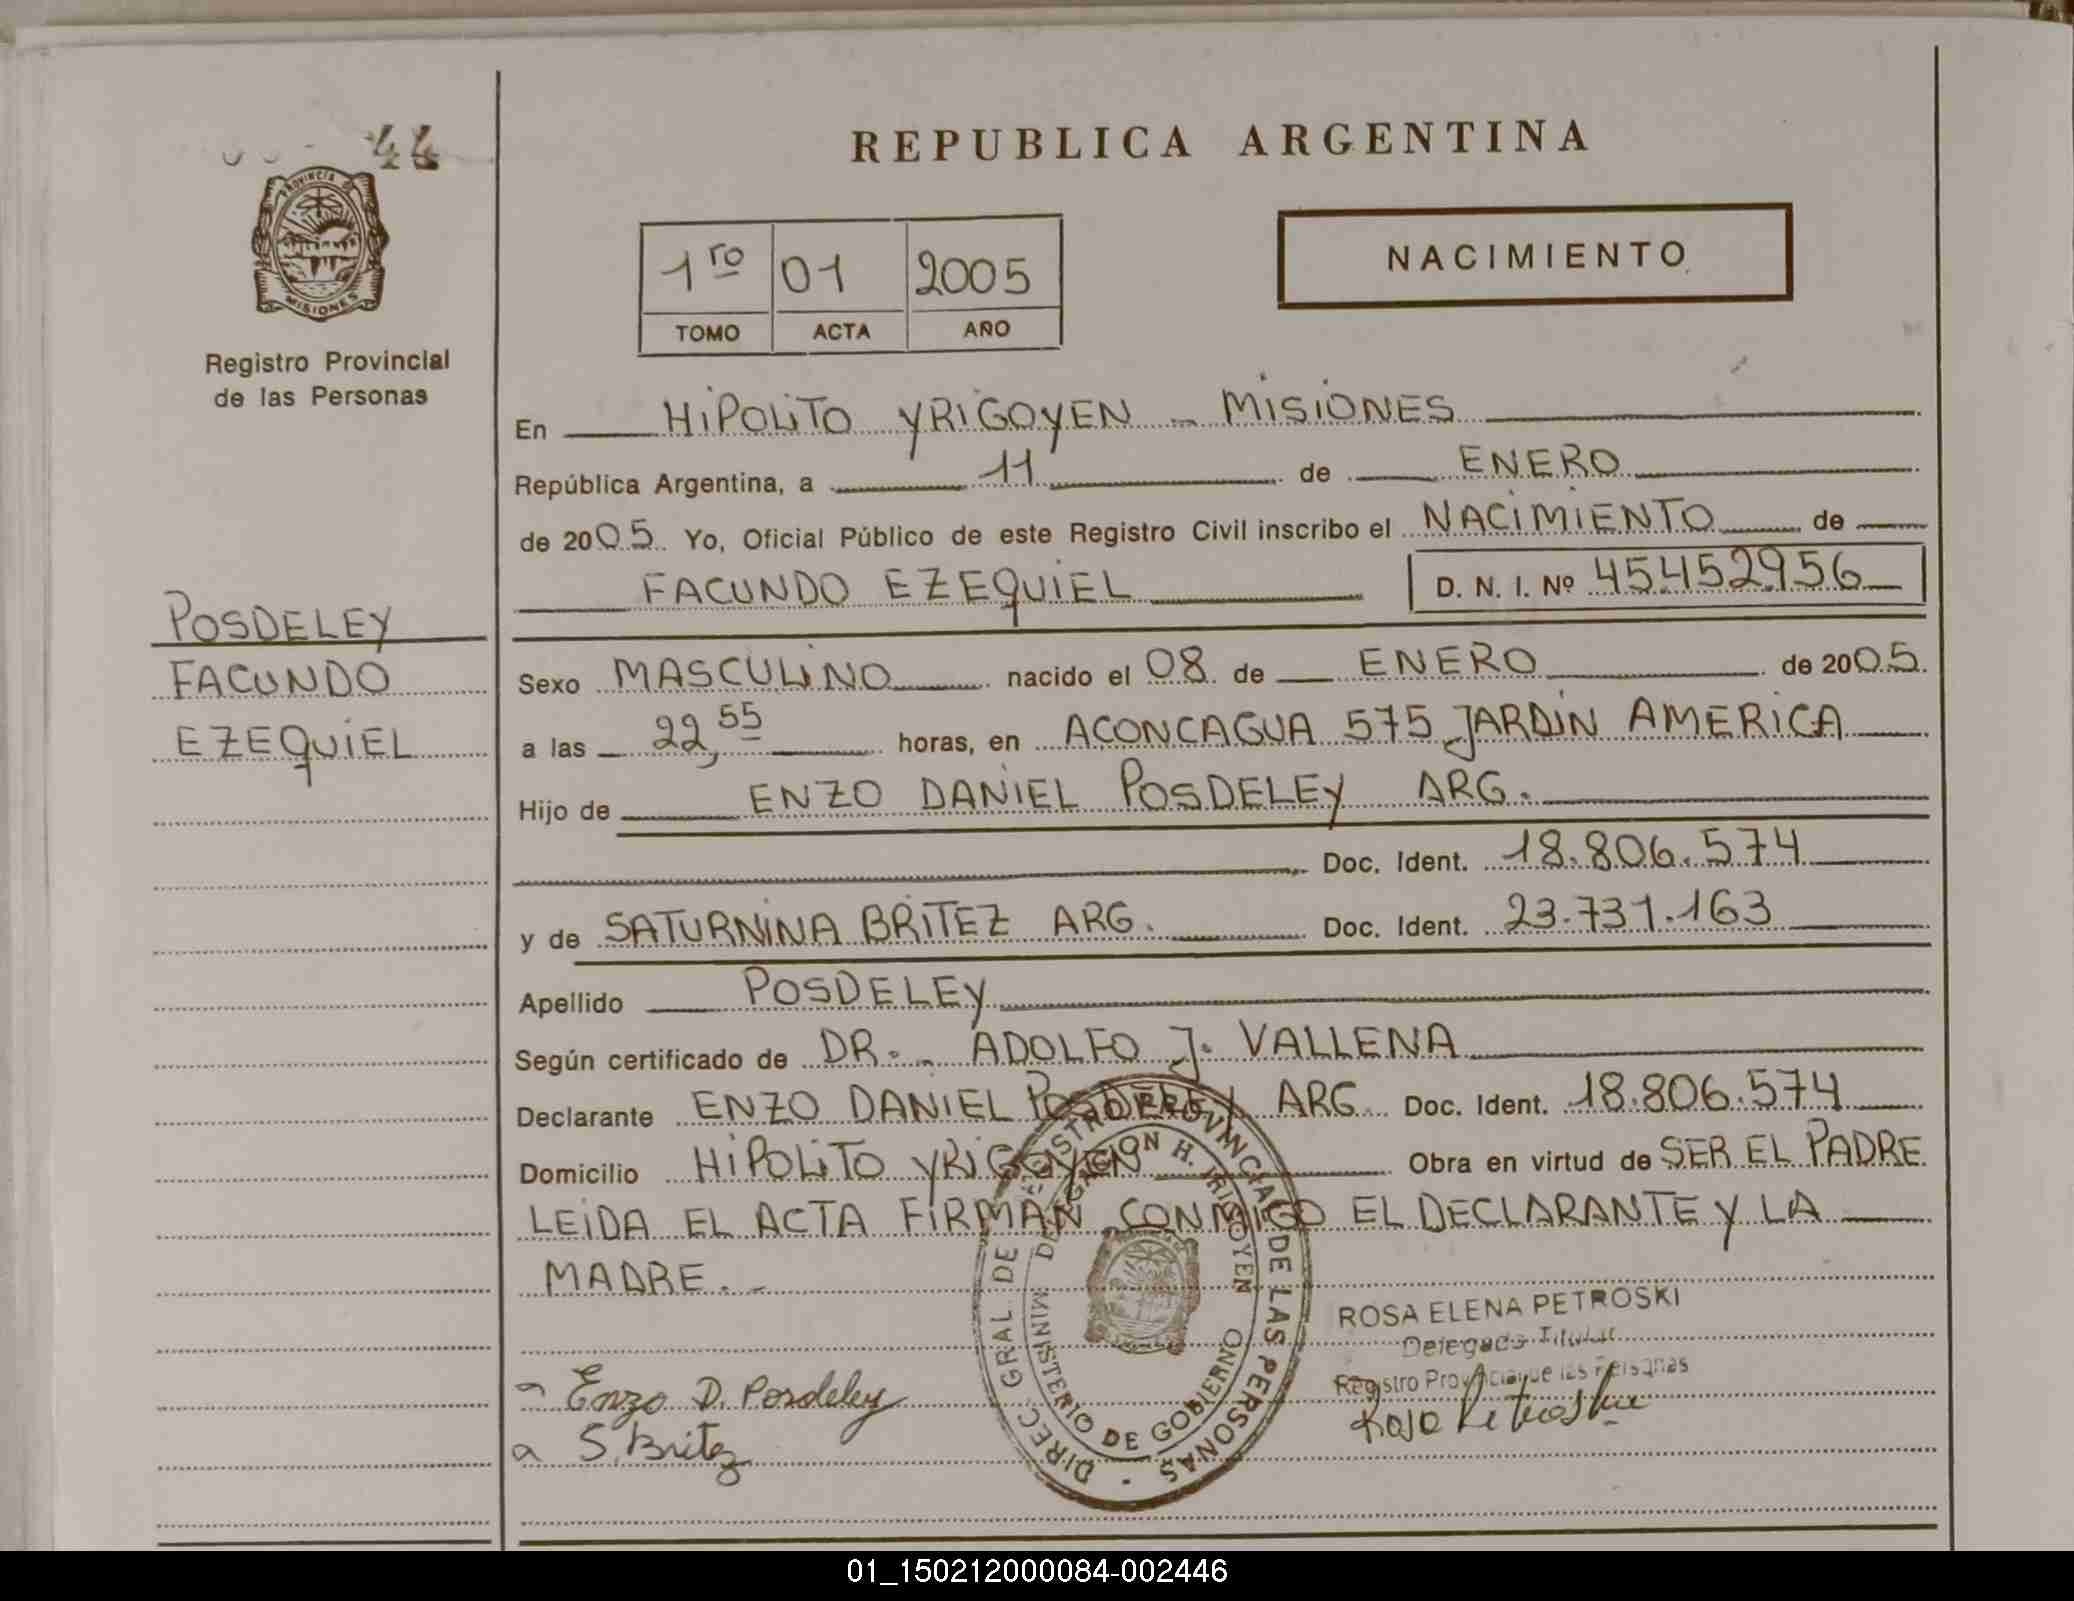 44
PROVINCIA DE
MISIONES
Registro Provincial
de las Personas
POSDELEY
FACUNDO
EZEQUIEL
REPUBLICA ARGENTINA
1ro 01 2005
TOMO ACTA AÑO
NACIMIENTO
En HIPOLITO YRIGOYEN - MISIONES
República Argentina, a 11 de ENERO
de 2005. Yo, Oficial Público de este Registro Civil inscribo el NACIMIENTO de
FACUNDO EZEQUIEL D. N. I. Nº 45452956
Sexo MASCULINO nacido el 08 de ENERO de 2005.
a las 22,55 horas, en ACONCAGUA 575 JARDIN AMERICA
Hijo de ENZO DANIEL POSDELEY ARG.
Doc. Ident. 18.806.574
y de SATURNINA BRITEZ ARG. Doc. Ident. 23.731.163
Apellido POSDELEY
Según certificado de DR.- ADOLFO J. VALLENA
Declarante ENZO DANIEL POSDELEY ARG. Doc. Ident. 18.806.574
Domicilio HIPOLITO YRIGOYEN Obra en virtud de SER EL PADRE
LEIDA EL ACTA FIRMAN CONMIGO EL DECLARANTE Y LA
MADRE.-
DIREC. GRAL. DE REGISTRO PROVINCIAL DE LAS PERSONAS
DELEGACION H. IRIGOYEN
MINISTERIO DE GOBIERNO
ROSA ELENA PETROSKI
Delegada Titular
Registro Provincial de las Personas
Enzo D. Posdeley
S. Britez
Rosa Petroski
01_150212000084-002446